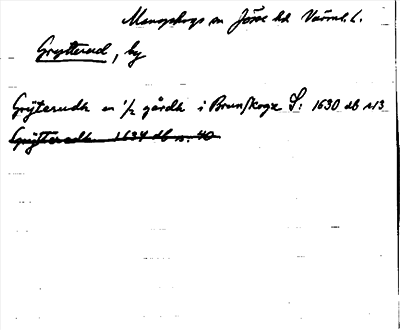 Mangskogs sn Jösse hd Värml. l.
Grytterud, by
Grÿterudh en 1/2 gårdh i Brunskoga S: 1630 db n 13
Grÿtteredh 1634 db n. 40